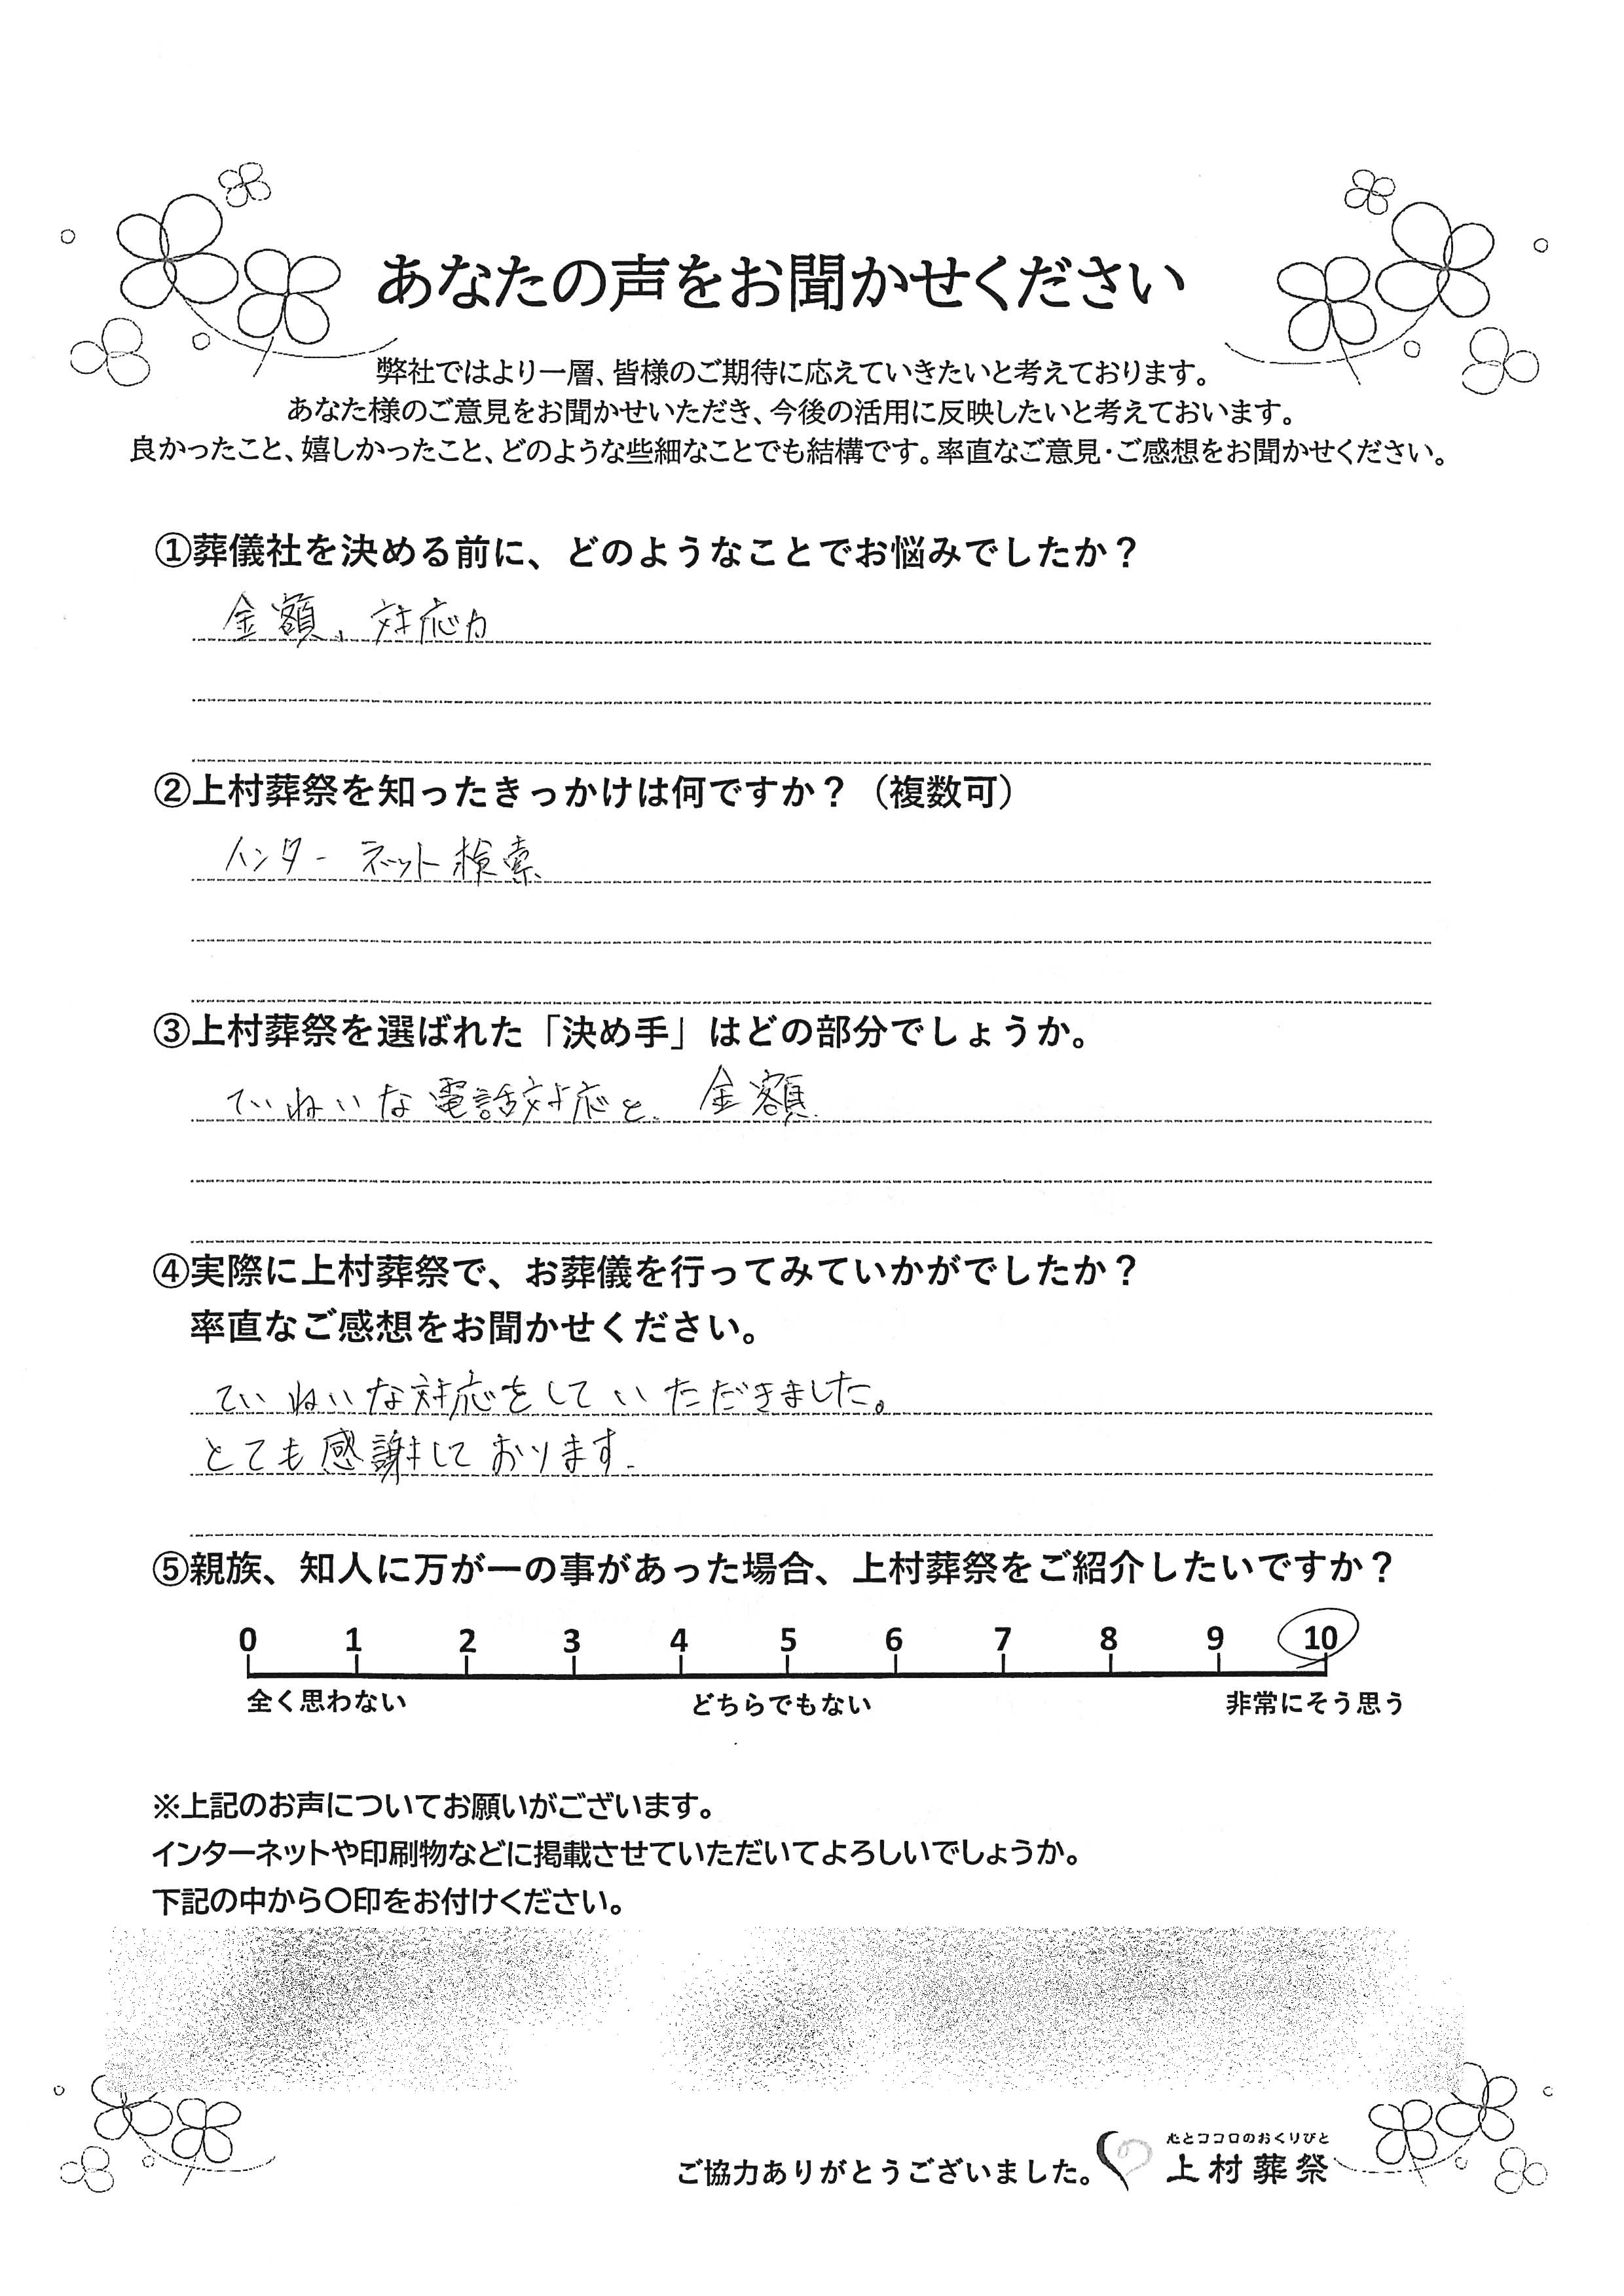 あなたの声をお聞かせください
弊社ではより一層、皆様のご期待に応えていきたいと考えております。
あなた様のご意見をお聞かせいただき、今後の活用に反映したいと考えておいます。
良かったこと、嬉しかったこと、どのような些細なことでも結構です。率直なご意見・ご感想をお聞かせください。
①葬儀社を決める前に、どのようなことでお悩みでしたか？
金額、対応力
②上村葬祭を知ったきっかけは何ですか？（複数可）
インターネット検索
③上村葬祭を選ばれた「決め手」はどの部分でしょうか。
ていねいな電話対応と、金額
④実際に上村葬祭で、お葬儀を行ってみていかがでしたか？
率直なご感想をお聞かせください。
ていねいな対応をしていただきました。
とても感謝しております。
⑤親族、知人に万が一の事があった場合、上村葬祭をご紹介したいですか？
0 1 2 3 4 5 6 7 8 9 10
全く思わない どちらでもない 非常にそう思う
※上記のお声についてお願いがございます。
インターネットや印刷物などに掲載させていただいてよろしいでしょうか。
下記の中から〇印をお付けください。
心とココロのおくりびと
ご協力ありがとうございました。 上村葬祭